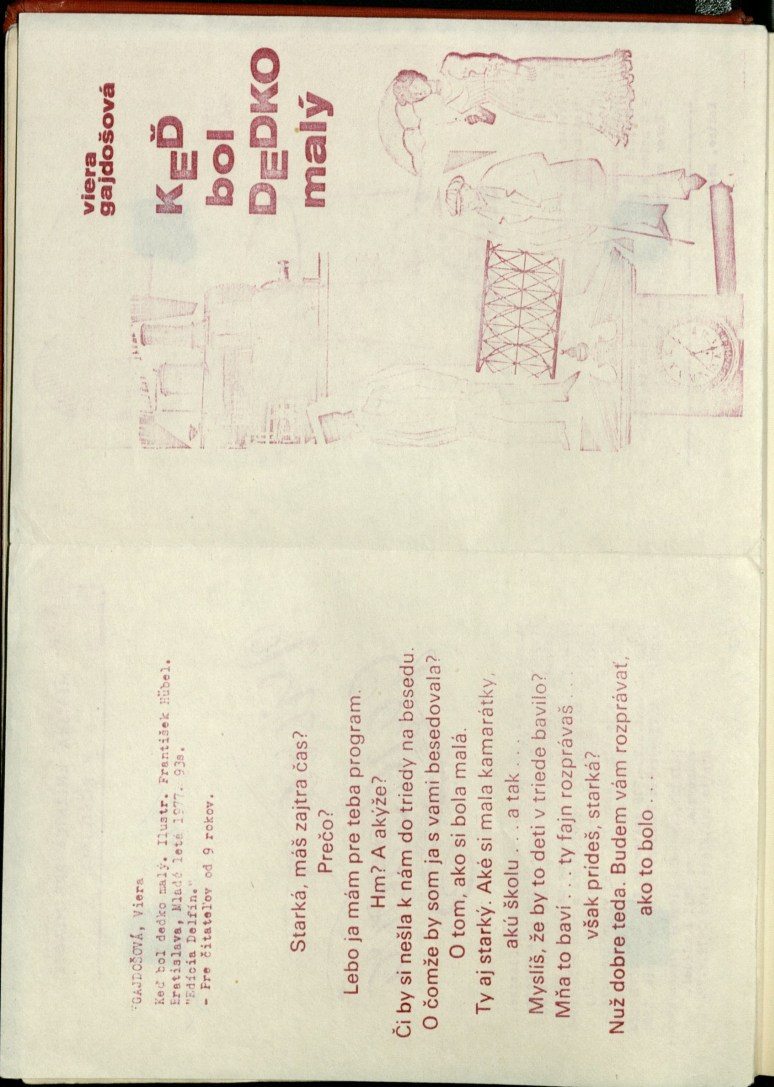 GAJDOŠOVÁ, Viera
Keď bol dedko malý. Ilustr. František Hübel.
Bratislava, Mladé letá 1977. 93s.
"Edícia Delfín."
- Pre čitateľov od 9 rokov.
Starká, máš zajtra čas?
Prečo?
Lebo ja mám pre teba program.
Hm? A akýže?
Či by si nešla k nám do triedy na besedu.
O čomže by som ja s vami besedovala?
O tom, ako si bola malá.
Ty aj starký. Aké si mala kamarátky,
akú školu . . . a tak . . .
Myslíš, že by to deti v triede bavilo?
Mňa to baví . . . ty fajn rozprávaš . . .
však prídeš, starká?
Nuž dobre teda. Budem vám rozprávať,
ako to bolo . . .
viera
gajdošová
KEĎ
bol
DEDKO
malý